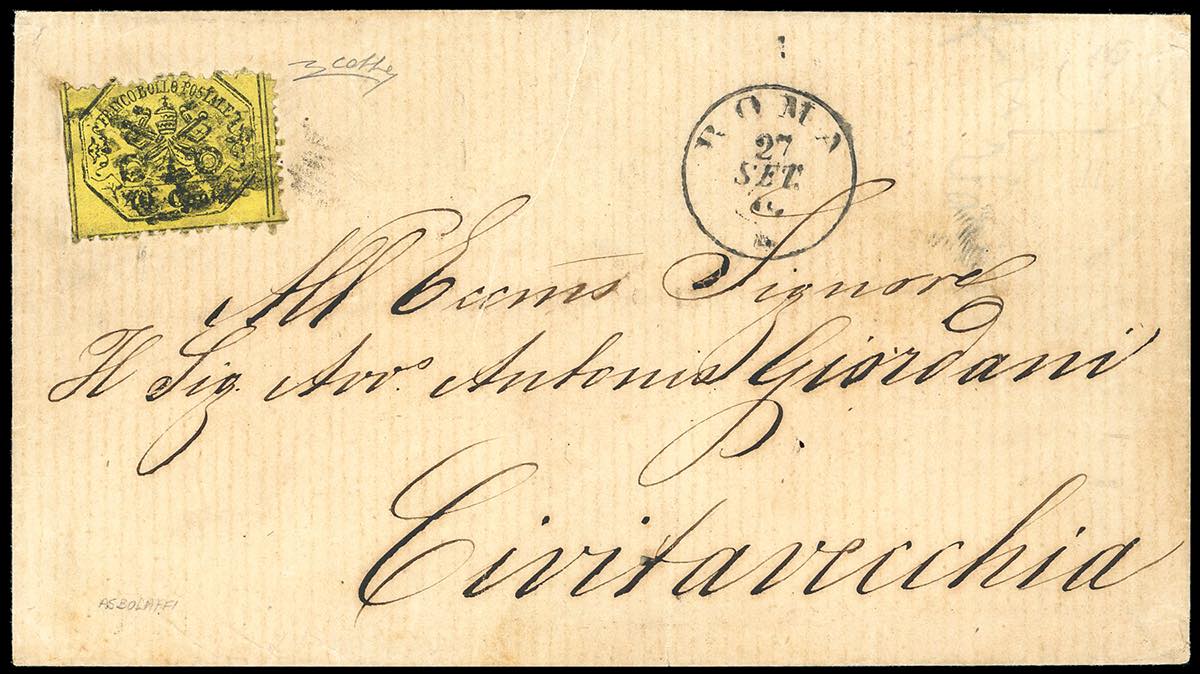 FRANCO BOLLO POSTALE
40 C
ROMA
27
SET.
All Eccmo Signore
Il Sig. Avvo. Antonio Giordani
Civitavecchia
ASBOLAFFI